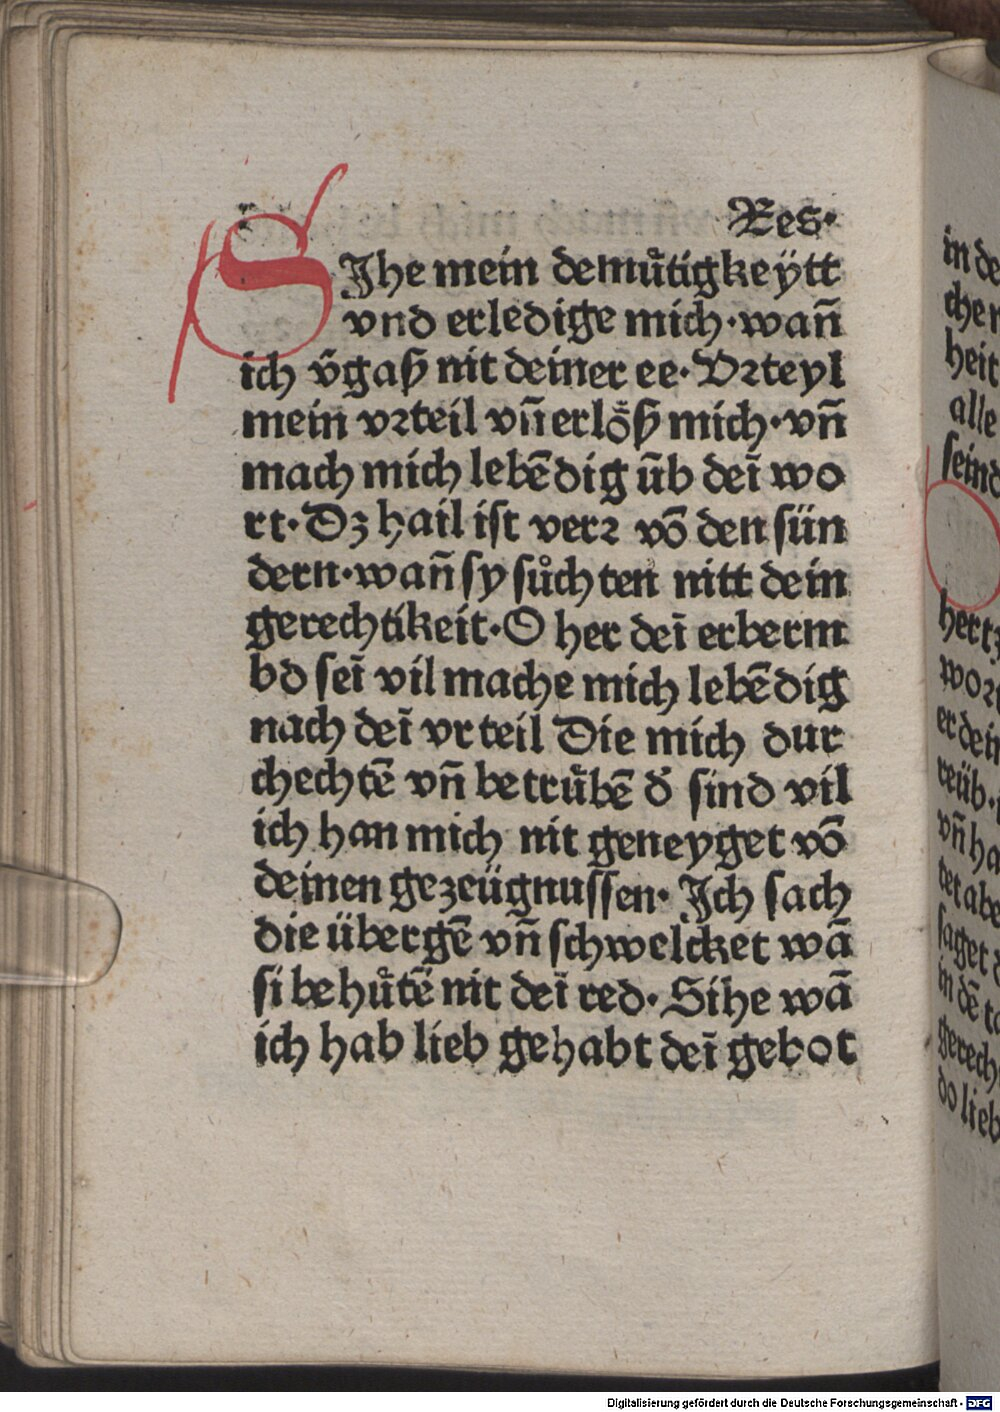 Res·
SJhe mein demuͤtigkeÿtt
vnd erledige mich·wañ
ich v̄gaß nit deiner ee·Vꝛteyl
mein vꝛteil vn̄ erloͤß mich·vn̄
mach mich lebēdig ūb deī wo
rt·Dz hail ist verꝛ vō den sün
dern·wañ sy suͦchten nitt dein
gerechtikeit·O her deī erberm
bd seī vil mache mich lebēdig
nach deī vrteil Die mich dur
chechtē vn̄ betruͤbē d̄ sind vil
ich han mich nit geneyget vō
deinen gezeügnussen· Jch sach
die übergē vn̄ schwelcket wā
si behuͤtē nit deī red· Sihe wā
ich hab lieb gehabt deī gebot
in de
che
heit
alle
seind
hertz
woꝛ
er dein
reüb·
vn̄ ha
tet abe
saget
in dē
gerech
do lieb
Digitalisierung gefördert durch die Deutsche Forschungsgemeinschaft - DFG